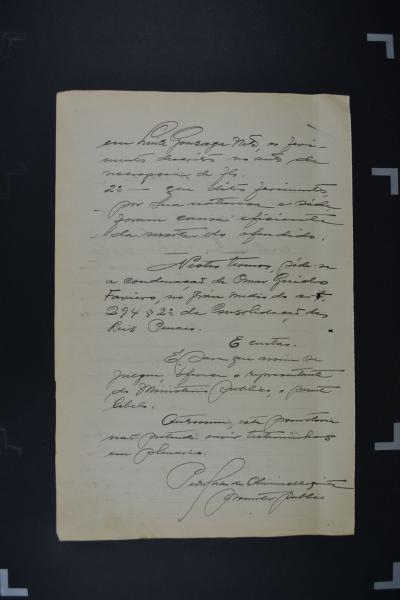 em Luiz Gonzaga Neto, os feri-
mentos descritos no auto de
necropsia de fls.
2º — que ditos ferimentos,
por sua natureza e séde
foram causa efficiente
da morte do offendido.
Nestes termos, péde-se
a condemnação de Omar
no gráu medio do art.
294 § 2º da Consolidação das
Leis Penaes.
E custas.
E, para que assim se
julgue, offerece o representante
do Ministerio Publico, o presente
libello.
Outrossim, esta promotoria
não pretende ouvir testemunhas
em plenario.
Promotor Publico